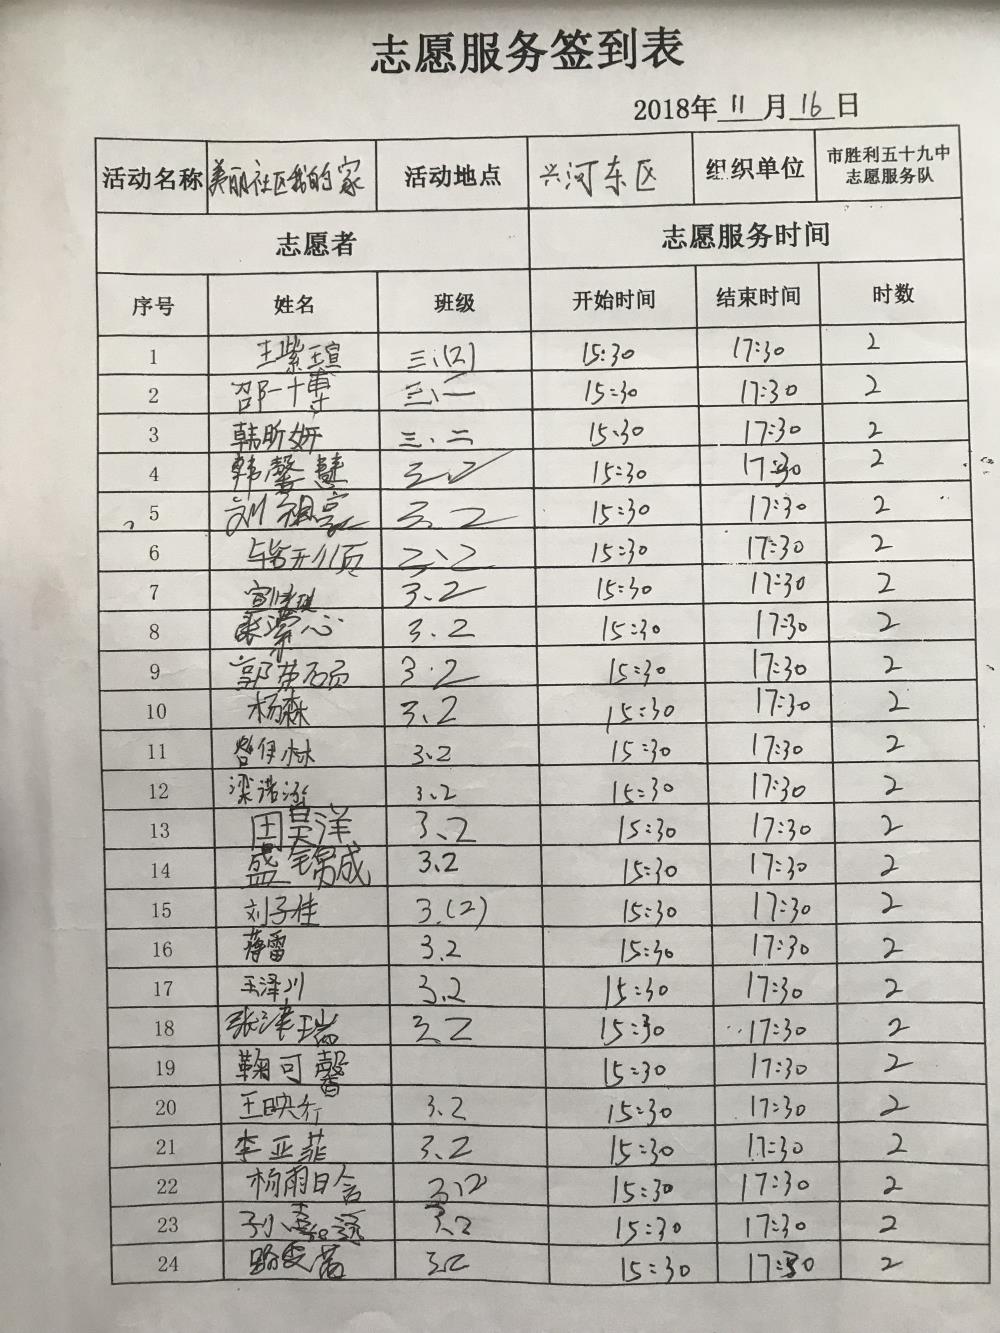 志愿服务签到表
2018年 11 月 16 日
活动名称 美丽社区我的家 活动地点 兴河东区 组织单位 市胜利五十九中
志愿服务队
志愿者 志愿服务时间
序号 姓名 班级 开始时间 结束时间 时数
1 王紫瑄 三.(2) 15:30 17:30 2
2 邵一博 三、二 15:30 17:30 2
3 韩昕妍 三、二 15:30 17:30 2
4 韩馨慧 3.2 15:30 17:30 2
5 刘 3.2 15:30 17:30 2
6 3、2 15:30 17:30 2
7 3.2 15:30 17:30 2
8 张潆心 3.2 15:30 17:30 2
9 郭芾硕 3.2 15:30 17:30 2
10 杨森 3、2 15:30 17:30 2
11 昝伊林 3.2 15:30 17:30 2
12 梁诺泓 3.2 15:30 17:30 2
13 周昊洋 3、2 15:30 17:30 2
14 盛锡成 3.2 15:30 17:30 2
15 刘子桂 3.(2) 15:30 17:30 2
16 蒋雷 3.2 15:30 17:30 2
17 王泽川 3.2 15:30 17:30 2
18 张津瑞 3.2 15:30 17:30 2
19 鞠可馨 15:30 17:30 2
20 王映行 3.2 15:30 17:30 2
21 李亚菲 3.2 15:30 17:30 2
22 杨雨晗 3.2 15:30 17:30 2
23 孙 3.2 15:30 17:30 2
24 路 3.2 15:30 17:30 2